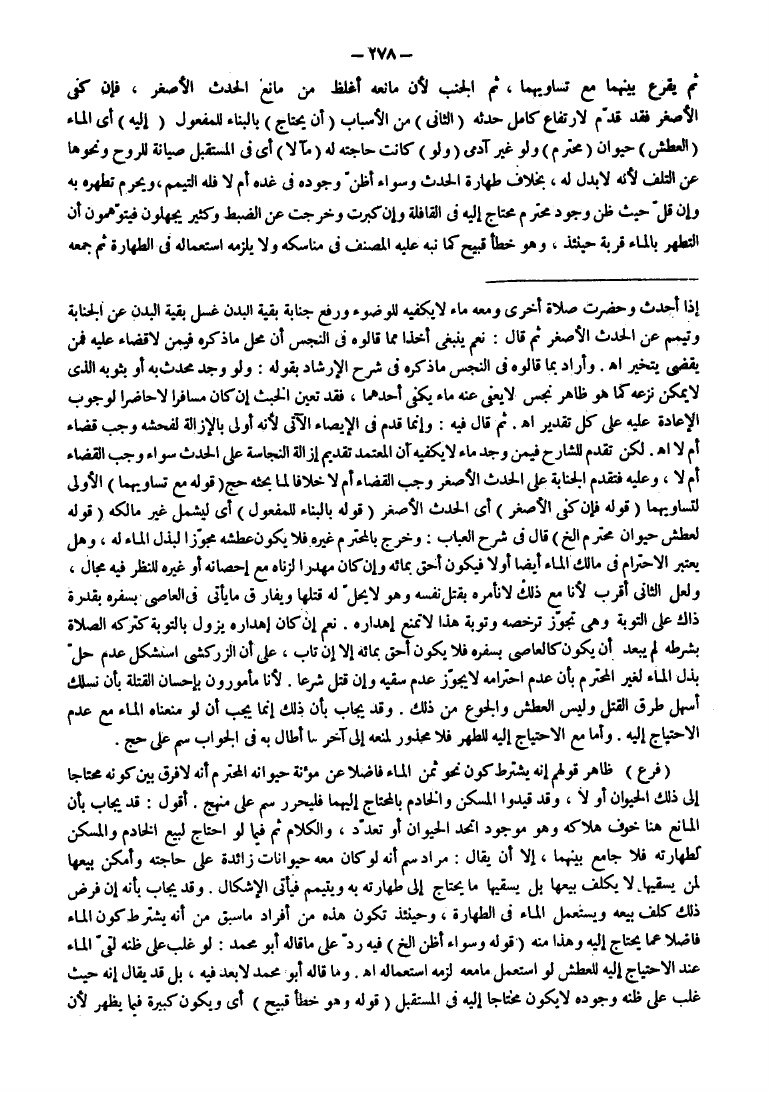 — ٢٧٨ —
ثم يقرع بينهما مع تساويهما ، ثم الجنب لأن مانعه أغلظ من مانع الحدث الأصغر ، فإن كفى
الأصغر فقد قدّم لارتفاع كامل حدثه ( الثانى ) من الأسباب ( أن يحتاج ) بالبناء للمفعول ( إليه ) أى الماء
( العطش ) حيوان ( محترم ) ولو غير آدمى ( ولو ) كانت حاجته له ( مآلا ) أى فى المستقبل صيانة للروح ونحوها
عن التلف لأنه لابدل له ، بخلاف طهارة الحدث وسواء أظنّ وجوده فى غده أم لا فله التيمم ، ويحرم تطهره به
وإن قلّ حيث ظن وجود محترم محتاج إليه فى القافلة وإن كبرت وخرجت عن الضبط وكثير يجهلون فيتوهمون أن
التطهر بالماء قربة حينئذ ، وهو خطأ قبيح كما نبه عليه المصنف فى مناسكه ولا يلزمه استعماله فى الطهارة ثم جمعه
إذا أحدث وحضرت صلاة أخرى ومعه ماء لايكفيه للوضوء ورفع جنابة بقية البدن غسل بقية البدن عن الجنابة
وتيمم عن الحدث الأصغر ثم قال : نعم ينبغى أخذا مما قالوه فى النجس أن محل ماذكره فيمن لاقضاء عليه فمن
يقضى يتخير اه . وأراد بما قالوه فى النجس ماذكره فى شرح الإرشاد بقوله : ولو وجد محدث به أو بثوبه الذى
لايمكن نزعه كما هو ظاهر نجس لايعفى عنه ماء يكفى أحدهما ، فقد تعين الخبث إن كان مسافرا لاحاضرا لوجوب
الإعادة عليه على كل تقدير اه . ثم قال فيه : وإنما قدم فى الإيصاء الآتى لأنه أولى بالإزالة لفحشه وجب قضاء
أم لا اه . لكن تقدم للشارح فيمن وجد ماء لايكفيه أن المعتمد تقديم إزالة النجاسة على الحدث سواء وجب القضاء
أم لا ، وعليه فتقدم الجنابة على الحدث الأصغر وجب القضاء أم لا خلافا لما بحثه حج ( قوله مع تساويهما ) الأولى
لتساويهما ( قوله فإن كفى الأصغر ) أى الحدث الأصغر ( قوله بالبناء للمفعول ) أى ليشمل غير مالكه ( قوله
لعطش حيوان محترم الخ ) قال فى شرح العباب : وخرج بالمحترم غيره فلا يكون عطشه مجوّزا لبذل الماء له ، وهل
يعتبر الاحترام فى مالك الماء أيضا أولا فيكون أحق بمائه وإن كان مهدرا لزناه مع إحصانه أو غيره للنظر فيه مجال ،
ولعل الثانى أقرب لأنا مع ذلك لانأمره بقتل نفسه وهو لايحلّ له قتلها ويفارق مايأتى فى العاصى بسفره بقدرة
ذاك على التوبة وهى تجوّز ترخصه وتوبة هذا لاتمنع إهداره . نعم إن كان إهداره يزول بالتوبة كتركه الصلاة
بشرطه لم يبعد أن يكون كالعاصى بسفره فلا يكون أحق بمائه إلا إن تاب ، على أن الزركشى استشكل عدم حلّ
بذل الماء لغير المحترم بأن عدم احترامه لايجوّز عدم سقيه وإن قتل شرعا . لأنا مأمورون بإحسان القتلة بأن نسلك
أسهل طرق القتل وليس العطش والجوع من ذلك . وقد يجاب بأن ذلك إنما يجب أن لو منعناه الماء مع عدم
الاحتياج إليه . وأما مع الاحتياج إليه للطهر فلا محذور لمنعه إلى آخر ما أطال به فى الجواب سم على حج .
( فرع ) ظاهر قولهم إنه يشترط كون نحو ثمن الماء فاضلا عن مؤنة حيوانه المحترم أنه لافرق بين كونه محتاجا
إلى ذلك الحيوان أو لا ، وقد قيدوا المسكن والخادم بالمحتاج إليهما فليحرر سم على منهج . أقول : قد يجاب بأن
المانع هنا خوف هلاكه وهو موجود اتحد الحيوان أو تعدّد ، والكلام ثم فيما لو احتاج لبيع الخادم والمسكن
لطهارته فلا جامع بينهما ، إلا أن يقال : مراد سم أنه لو كان معه حيوانات زائدة على حاجته وأمكن بيعها
لمن يسقيها لا يكلف بيعها بل يسقيها ما يحتاج إلى طهارته به ويتيمم فيأتى الإشكال . وقد يجاب بأنه إن فرض
ذلك كلف بيعه ويستعمل الماء فى الطهارة ، وحينئذ تكون هذه من أفراد ماسبق من أنه يشترط كون الماء
فاضلا عما يحتاج إليه وهذا منه ( قوله وسواء أظن الخ ) فيه ردّ على ماقاله أبو محمد : لو غلب على ظنه لقىّ الماء
عند الاحتياج إليه للعطش لو استعمل مامعه لزمه استعماله اه . وما قاله أبو محمد لابعد فيه ، بل قد يقال إنه حيث
غلب على ظنه وجوده لايكون محتاجا إليه فى المستقبل ( قوله وهو خطأ قبيح ) أى ويكون كبيرة فيما يظهر لأن